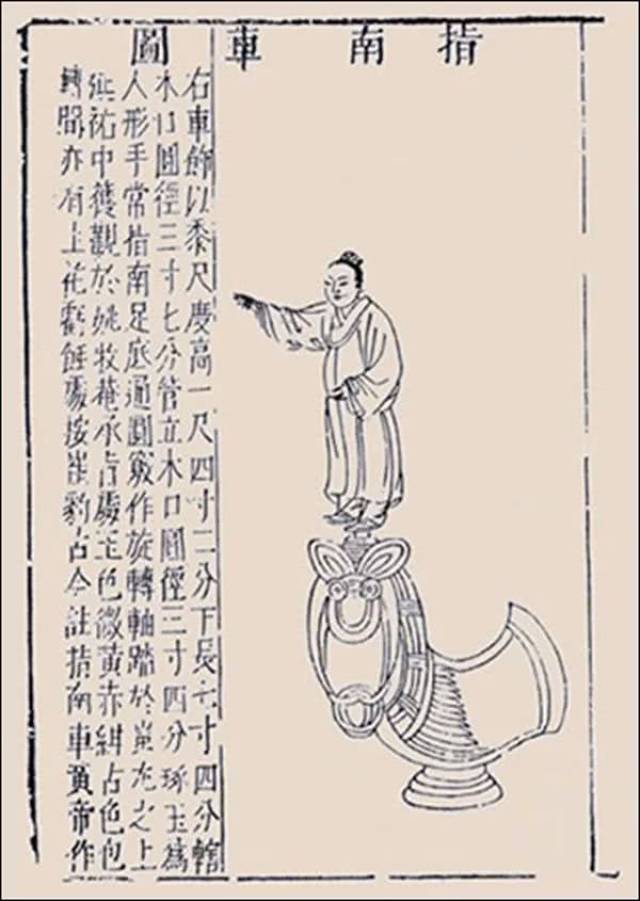 指南車圖
右車飾以黍尺慶高一尺四寸二分下長七寸四分轄
木口圓徑三寸七分管立木口圓徑三寸四分琢玉為
人形手常指南足底通圓竅作旋轉軸踏於蚩尤之上
延祐中獲觀於姚牧菴承旨處玉色微黃赤紺古色包
間亦有土花蝕處按崔豹古今註指南車黃帝作